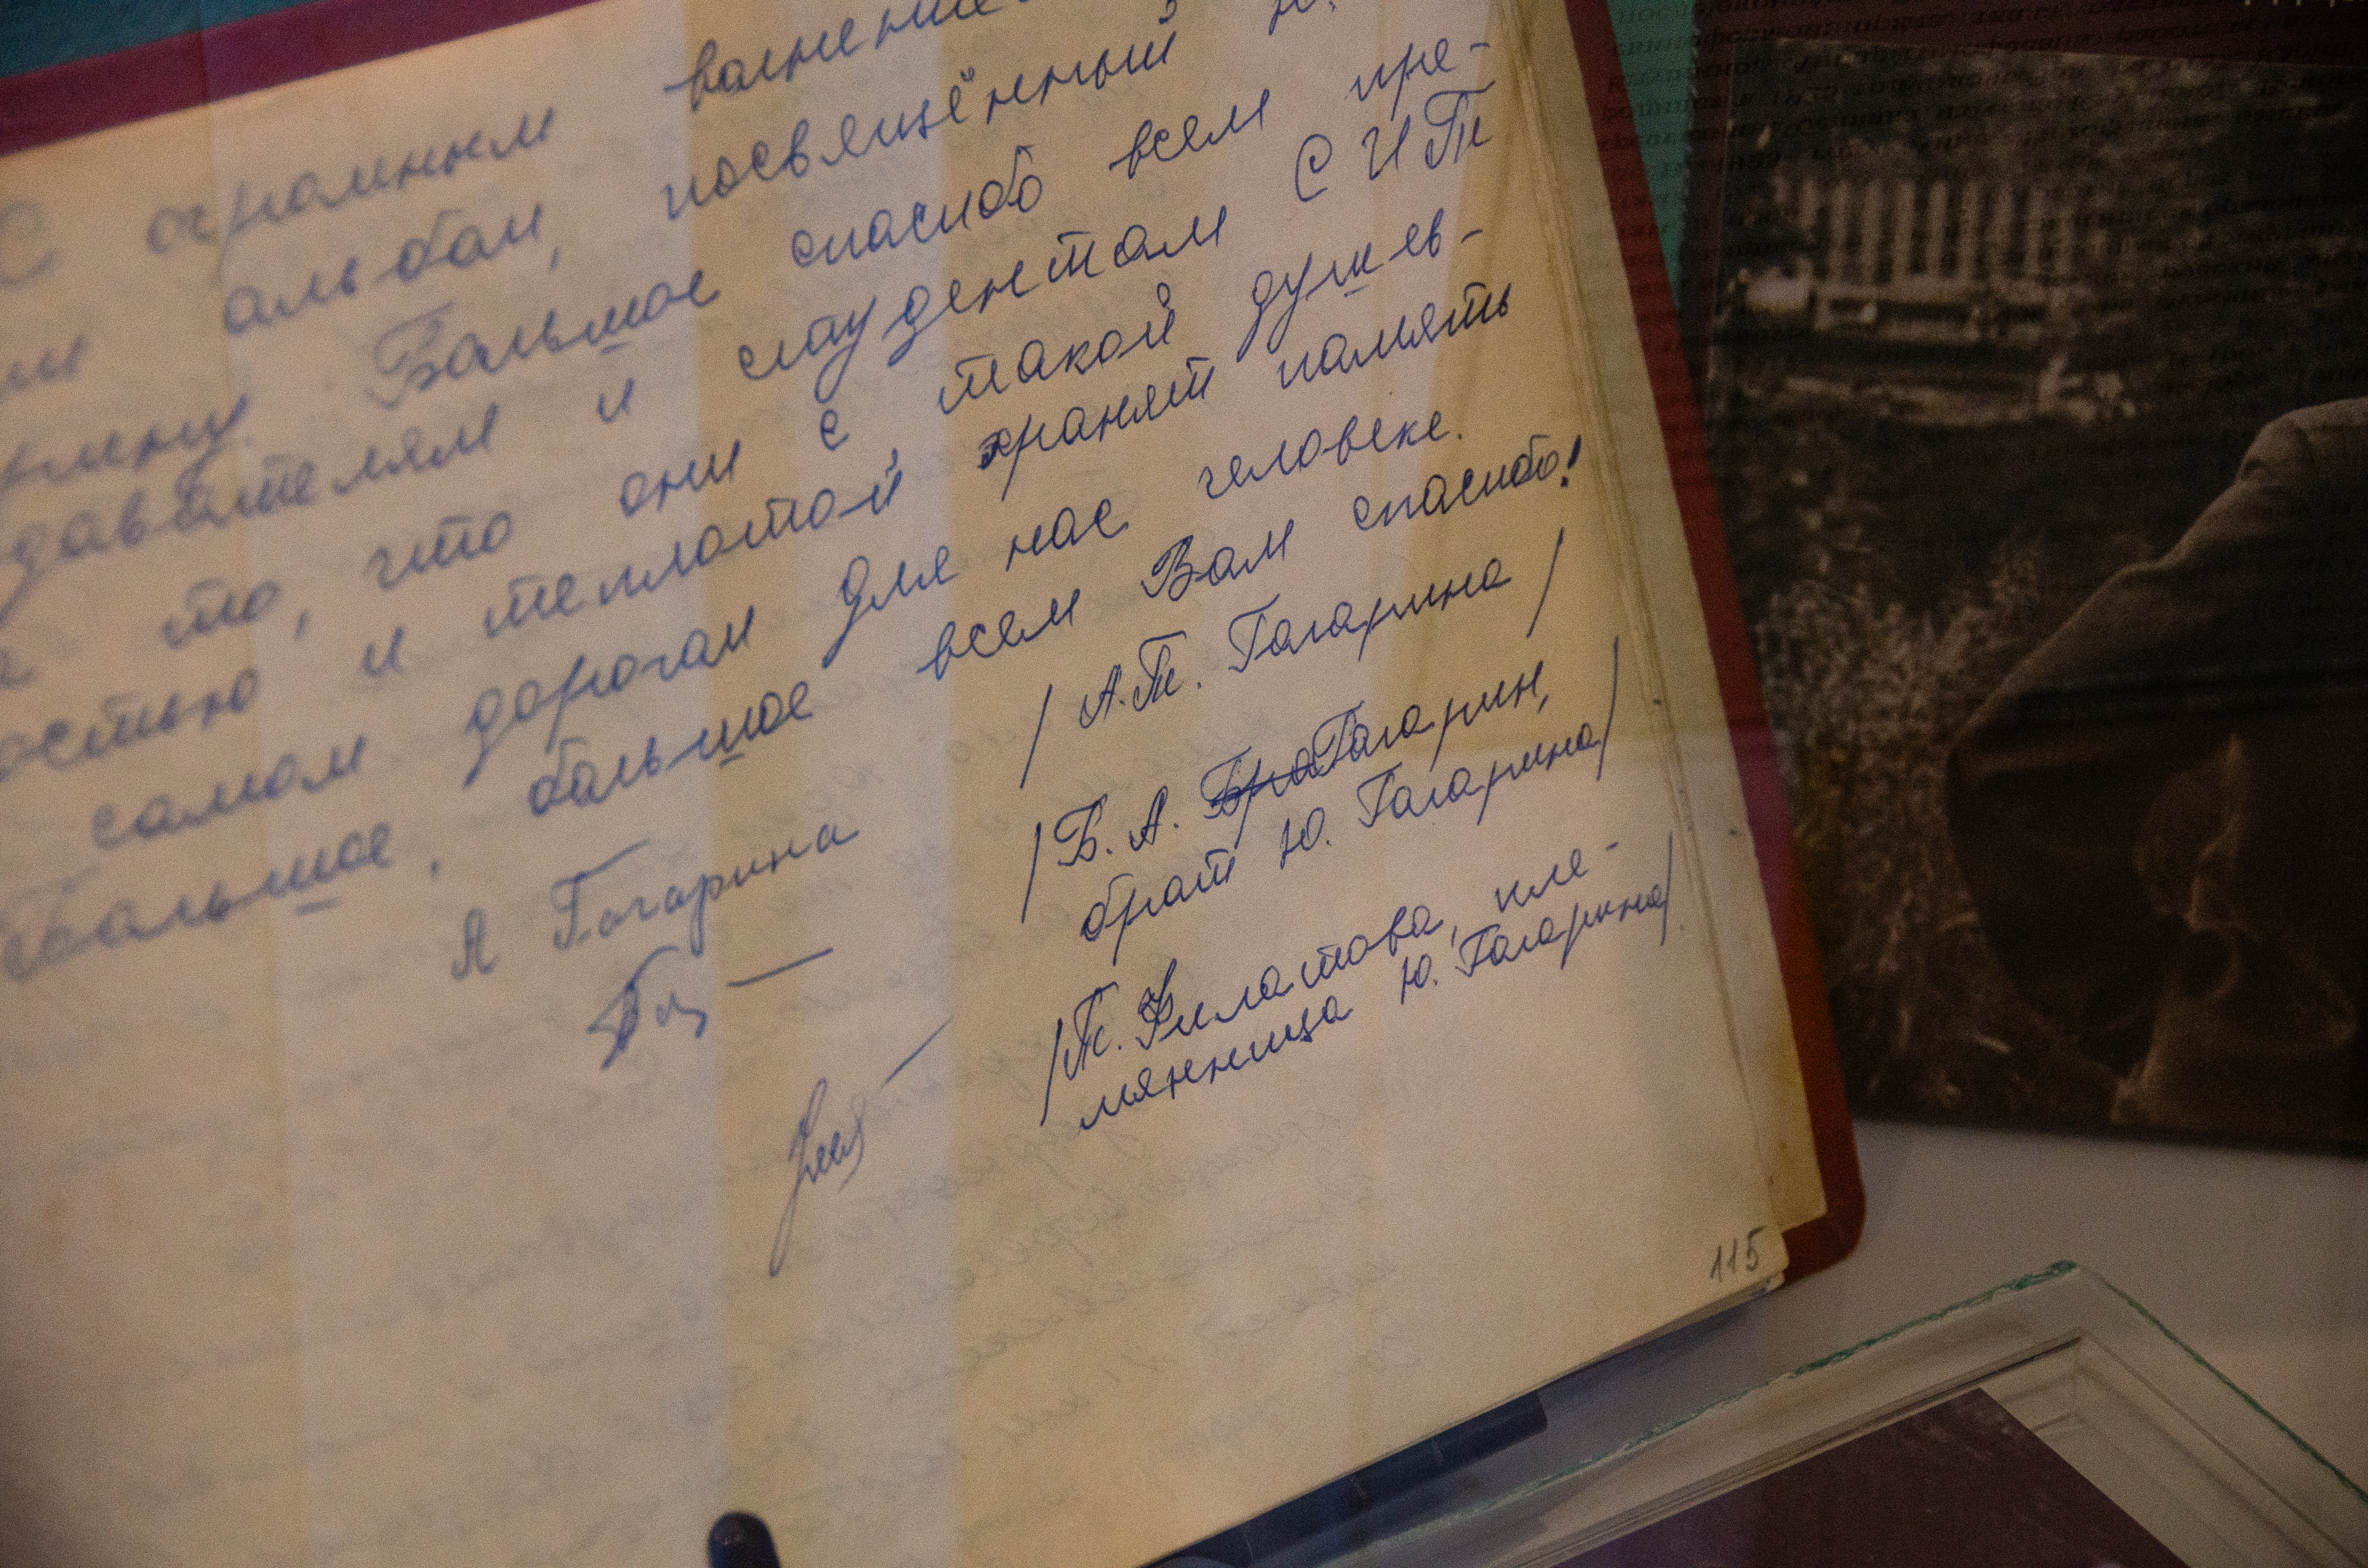 С огромным волнение
альбом, посвещённый Ю.
Большое спасибо всем пре-
давателям и студентам СИТи
то, что они с такой душев-
остью и теплотой хранят память
самом дорогом для нас человеке.
Большое, большое всем Вам спасибо!
А Гагарина /А.Т. Гагарина/
/Б. А. Бра Гагарин,
брат Ю. Гагарина/
/Т. Филатова, пле-
мянница Ю. Гагарина/
115